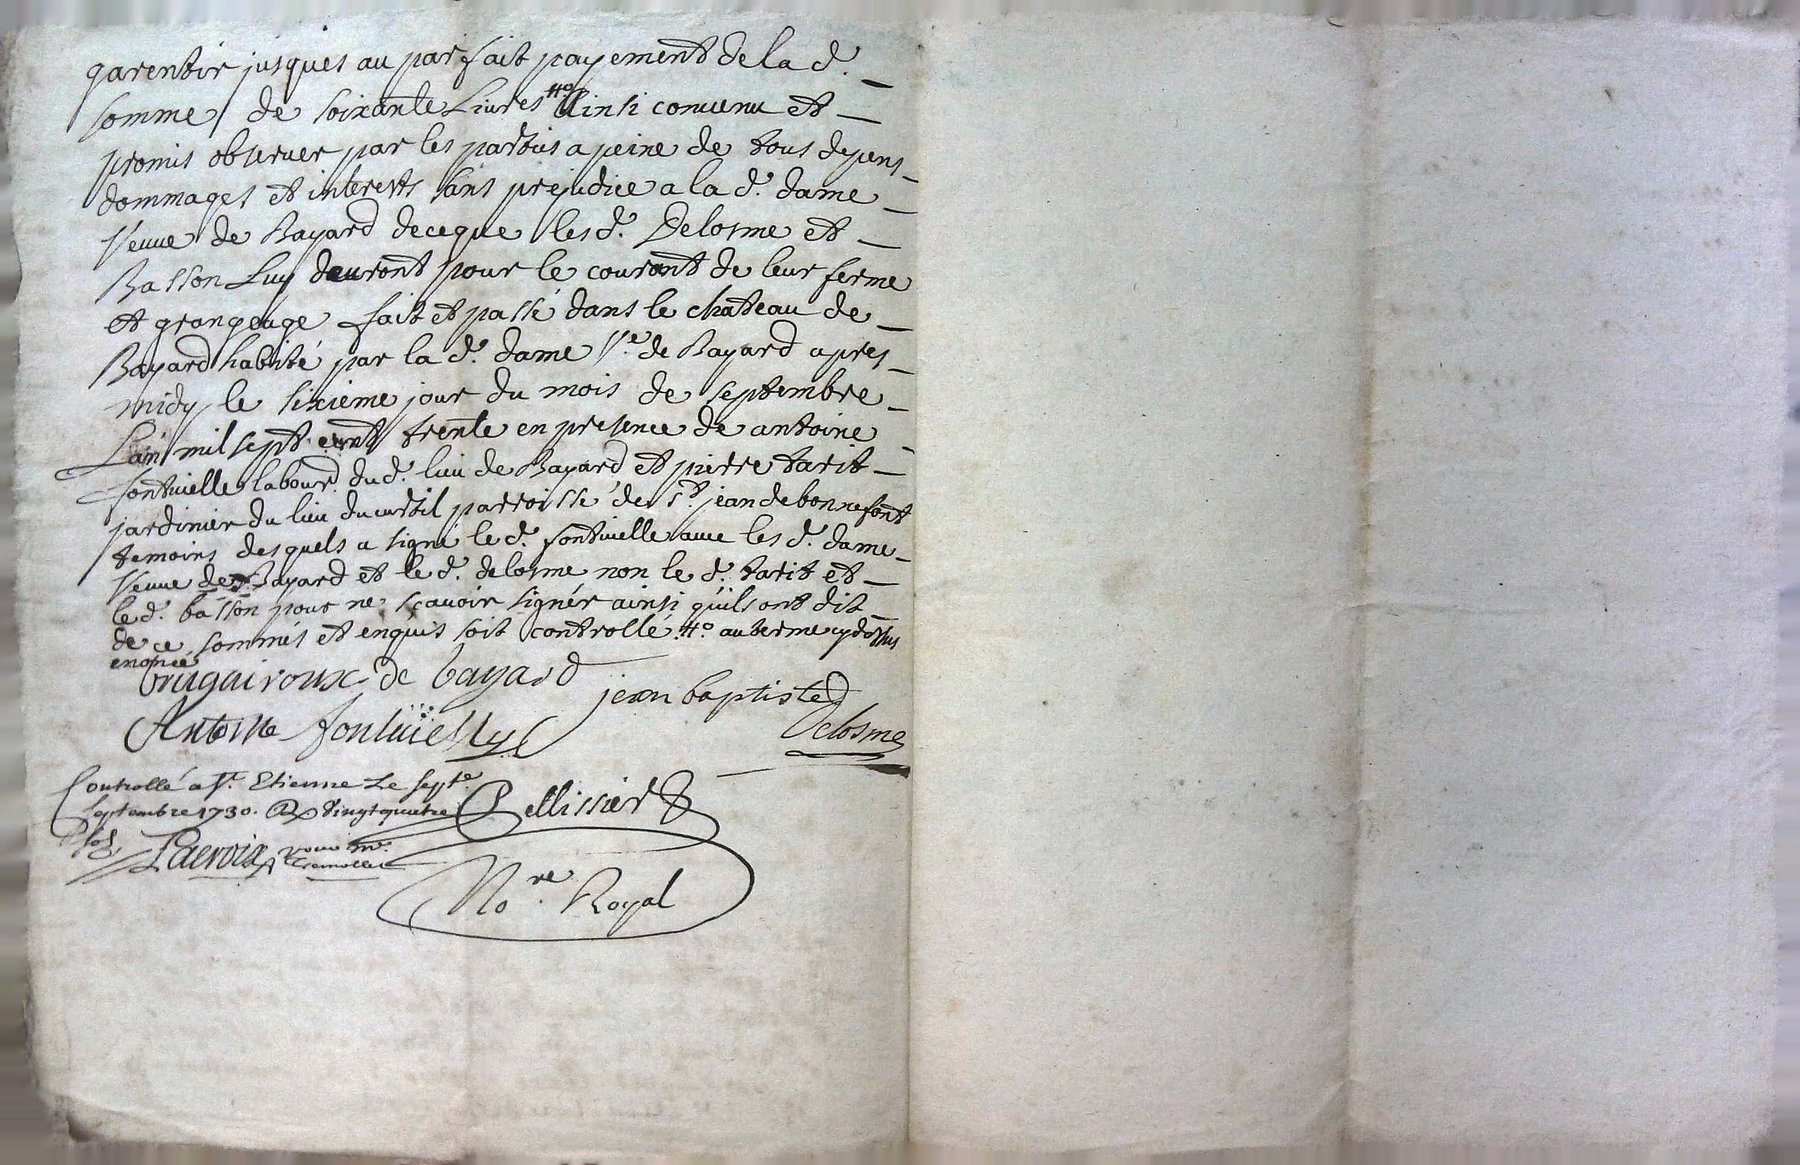 garentir jusques au parfait payement de la d.
somme de soixante Livres #° Ainsi convenu et
promis observer par les parties a peine de tous depens
dommages et interests sans prejudice a la d. dame
veuve de Bayard de ce que les d. Delosme et
Basson Luy devront pour le courant de leur ferme
et grangeage fait et passé dans le chateau de
Bayard habité par la d. dame v.e de Bayard apres
midy le sixieme jour du mois de septembre
L'an mil sept cent trente en presence de antoine
fontvielle labour. du d. lieu de Bayard et pierre tarit
jardinier du lieu du curtil parroisse de S.t jean de bonnefont
temoins desquels a signé le d. fontvielle avec les d. dame
veuve de Bayard et le d. delosme non le d. tarit et
le d. basson pour ne scavoir signer ainsi qu'ils ont dit
de ce sommés et enquis soit controllé #° au terme cy dessus
enoncé
brugairoux de bayard
jean baptiste
Delosme
Antoine fontvielle
Controllé a S.t Etienne Le sept.e
septembre 1730. R vingt quatre
sols
Pellissier
Lacroix pour m.r
No.re Royal